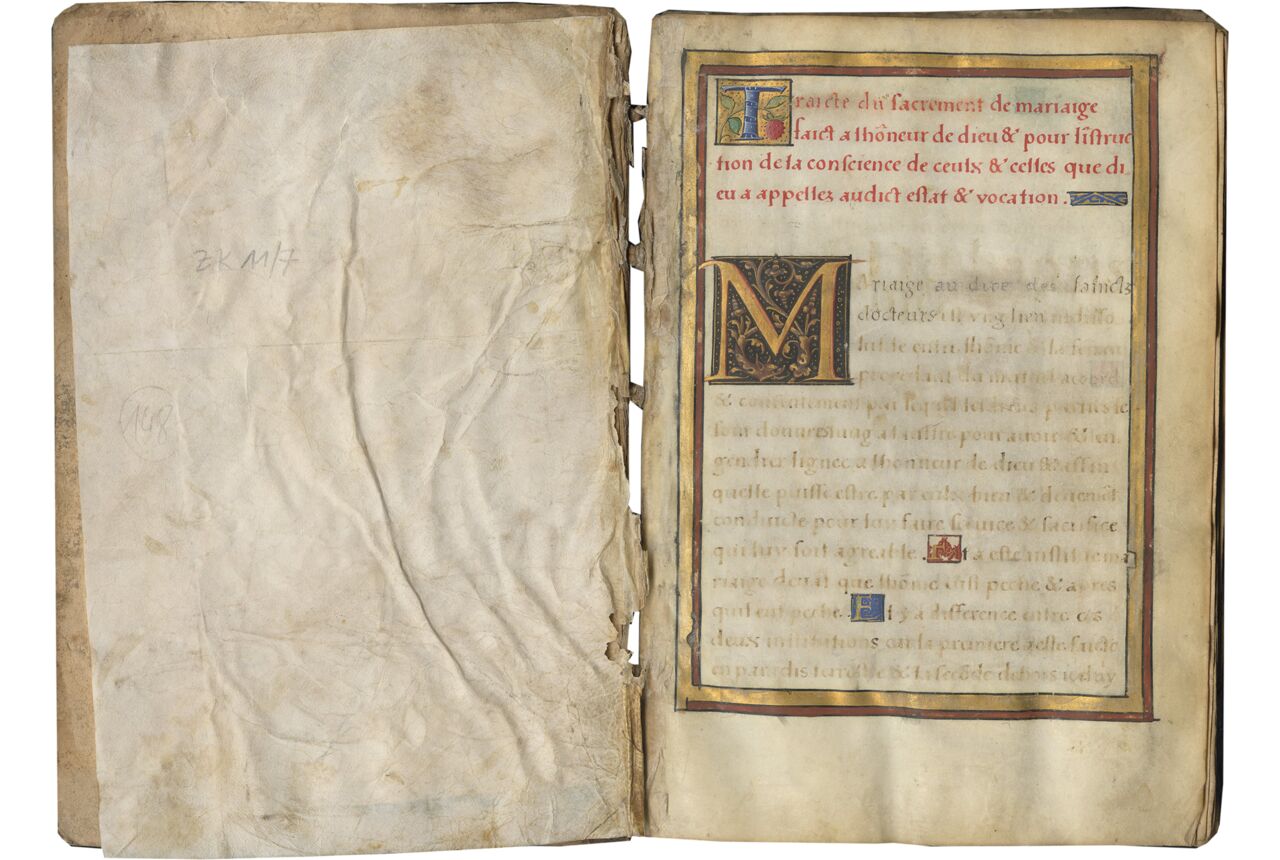 ZK 11/7
148
Traicte du sacrement de mariaige
faict a lhõneur de dieu & pour lĩstruc
tion de la conscience de ceulx & celles que di
eu a appellez audict estat & vocation.
Mariaige au dire des saincts
docteurs est vng lien indisso
luble entre lhõme & la femme
procedant du mutuel accord
& consentement par lequel les deux parties se
sont donnees lung a laultre pour avoir & en
gendrer lignee a lhonneur de dieu & affin
quelle puisse estre par eulx bien & deuement
conduicte pour luy faire seruice & sacrifice
qui luy soit agreable. Et a este institue ma
riaige deuãt que lhõme eust peche & apres
quil eut peche. Et y a difference entre ces
deux institutions car la premiere a este faicte
en paradis terrestre & la secõde dehors icelluy